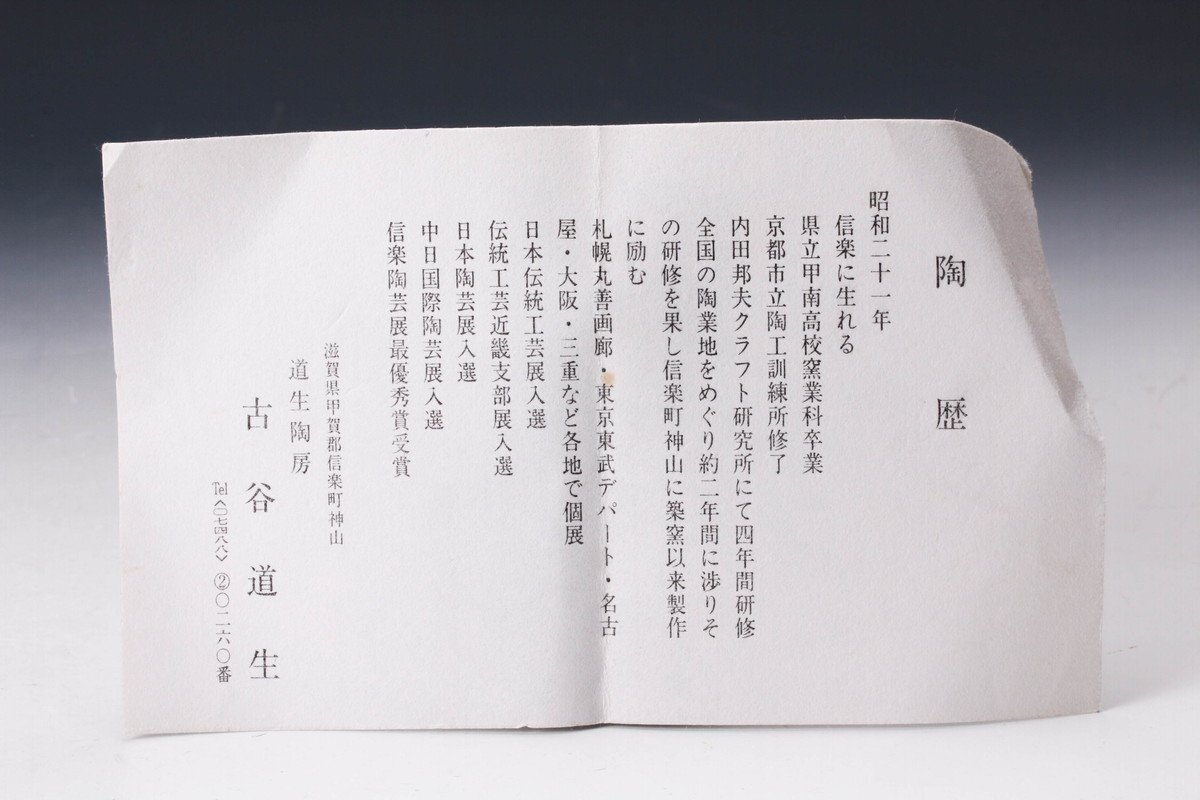 陶歴
昭和二十一年
信楽に生れる
県立甲南高校窯業科卒業
京都市立陶工訓練所修了
内田邦夫クラフト研究所にて四年間研修
全国の陶業地をめぐり約二年間に渉りそ
の研修を果し信楽町神山に築窯以来製作
に励む
札幌丸善画廊・東京東武デパート・名古
屋・大阪・三重など各地で個展
日本伝統工芸展入選
伝統工芸近畿支部展入選
日本陶芸展入選
中日国際陶芸展入選
信楽陶芸展最優秀賞受賞
滋賀県甲賀郡信楽町神山
道生陶房
古谷道生
Tel〈〇七四八八〉②〇二六〇番